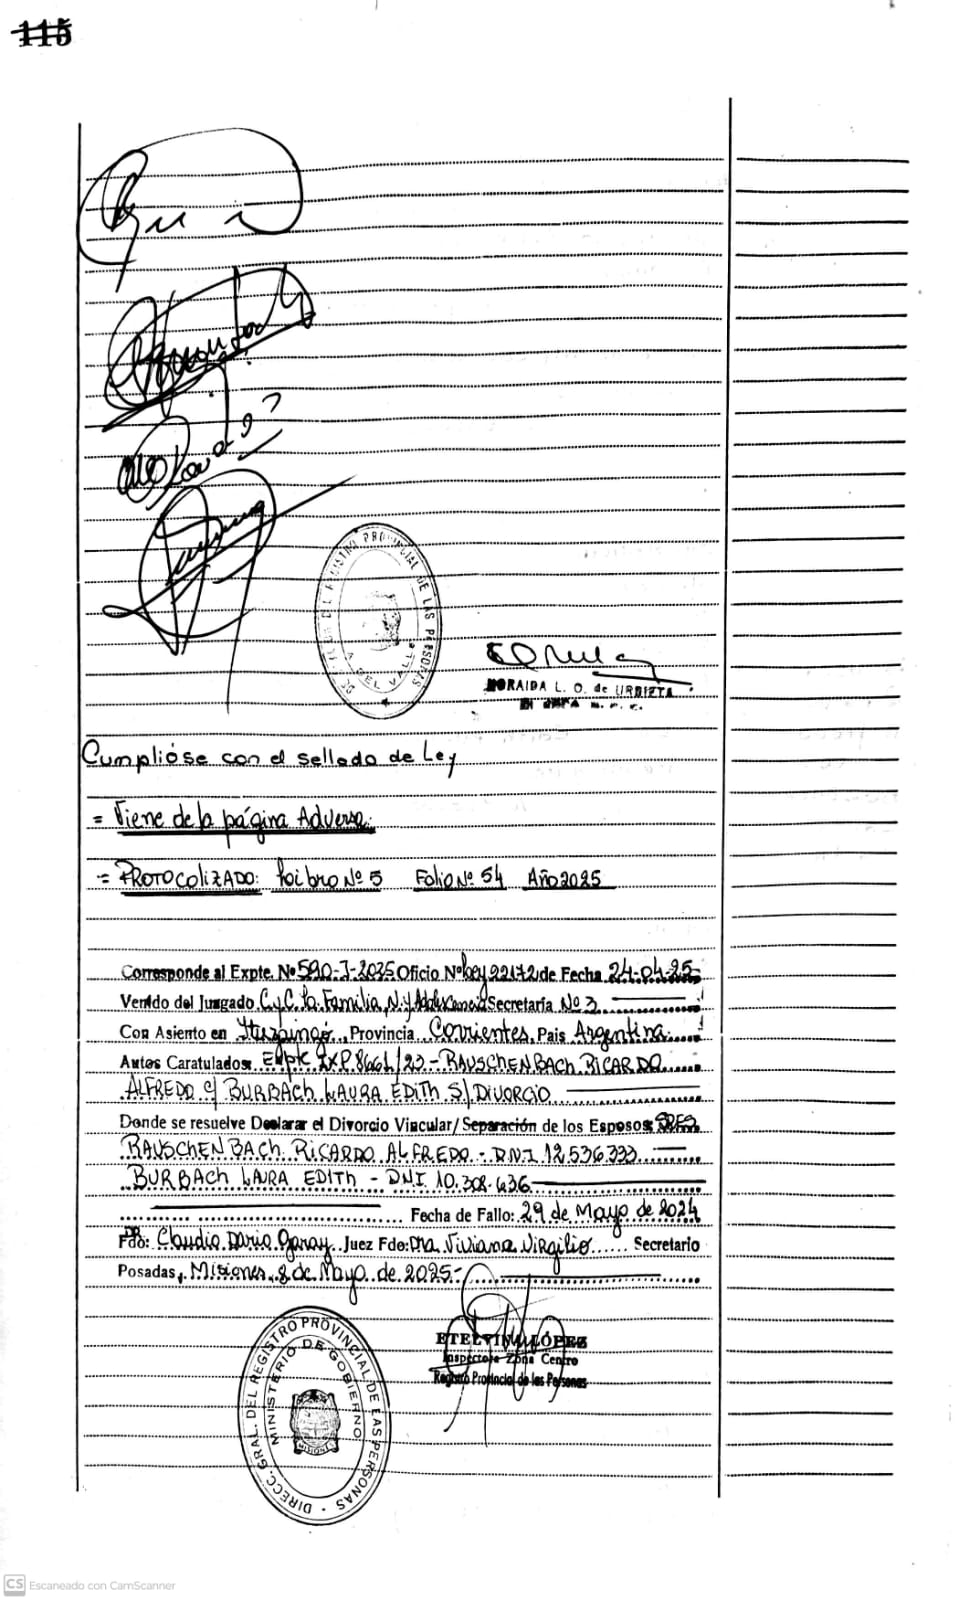 115
DEL REGISTRO PROVINCIAL DE LAS PERSONAS
DEL VALLE
NORAIDA L. O. de URBIETA
Cumplióse con el sellado de Ley
= Viene de la página Adversa.
= PROTOCOLIZADO: Libro Nº 5 Folio Nº 54 Año 2025
Corresponde al Expte. Nº 590-J-2025 Oficio Nº Ley 22172 de Fecha 24-04-25
Venido del Juzgado C y C. la. Familia, N. y Adolescencia Secretaría Nº 3
Con Asiento en Ituzaingó, Provincia Corrientes, Pais Argentina
Autos Caratulados: Expte EXP. 8661/23 - RAUSCHENBACH RICARDO
ALFREDO c/ BURBACH LAURA EDITH S/ DIVORCIO
Donde se resuelve Declarar el Divorcio Vincular/ Separación de los Esposos SRES.
RAUSCHENBACH RICARDO ALFREDO - D.N.I 12.536.333
BURBACH LAURA EDITH - DNI 10.308.636
Fecha de Fallo: 29 de Mayo de 2024
Fdo: DR. Claudio Dario Garay Juez Fdo: Dra Viviana Virgilio Secretario
Posadas, Misiones, 8 de Mayo de 2025.-
ETELVINA LÓPEZ
Inspectora Zona Centro
Registro Provincial de las Personas
DIRECC. GRAL. DEL REGISTRO PROVINCIAL DE LAS PERSONAS
MINISTERIO DE GOBIERNO
MISIONES
CS Escaneado con CamScanner